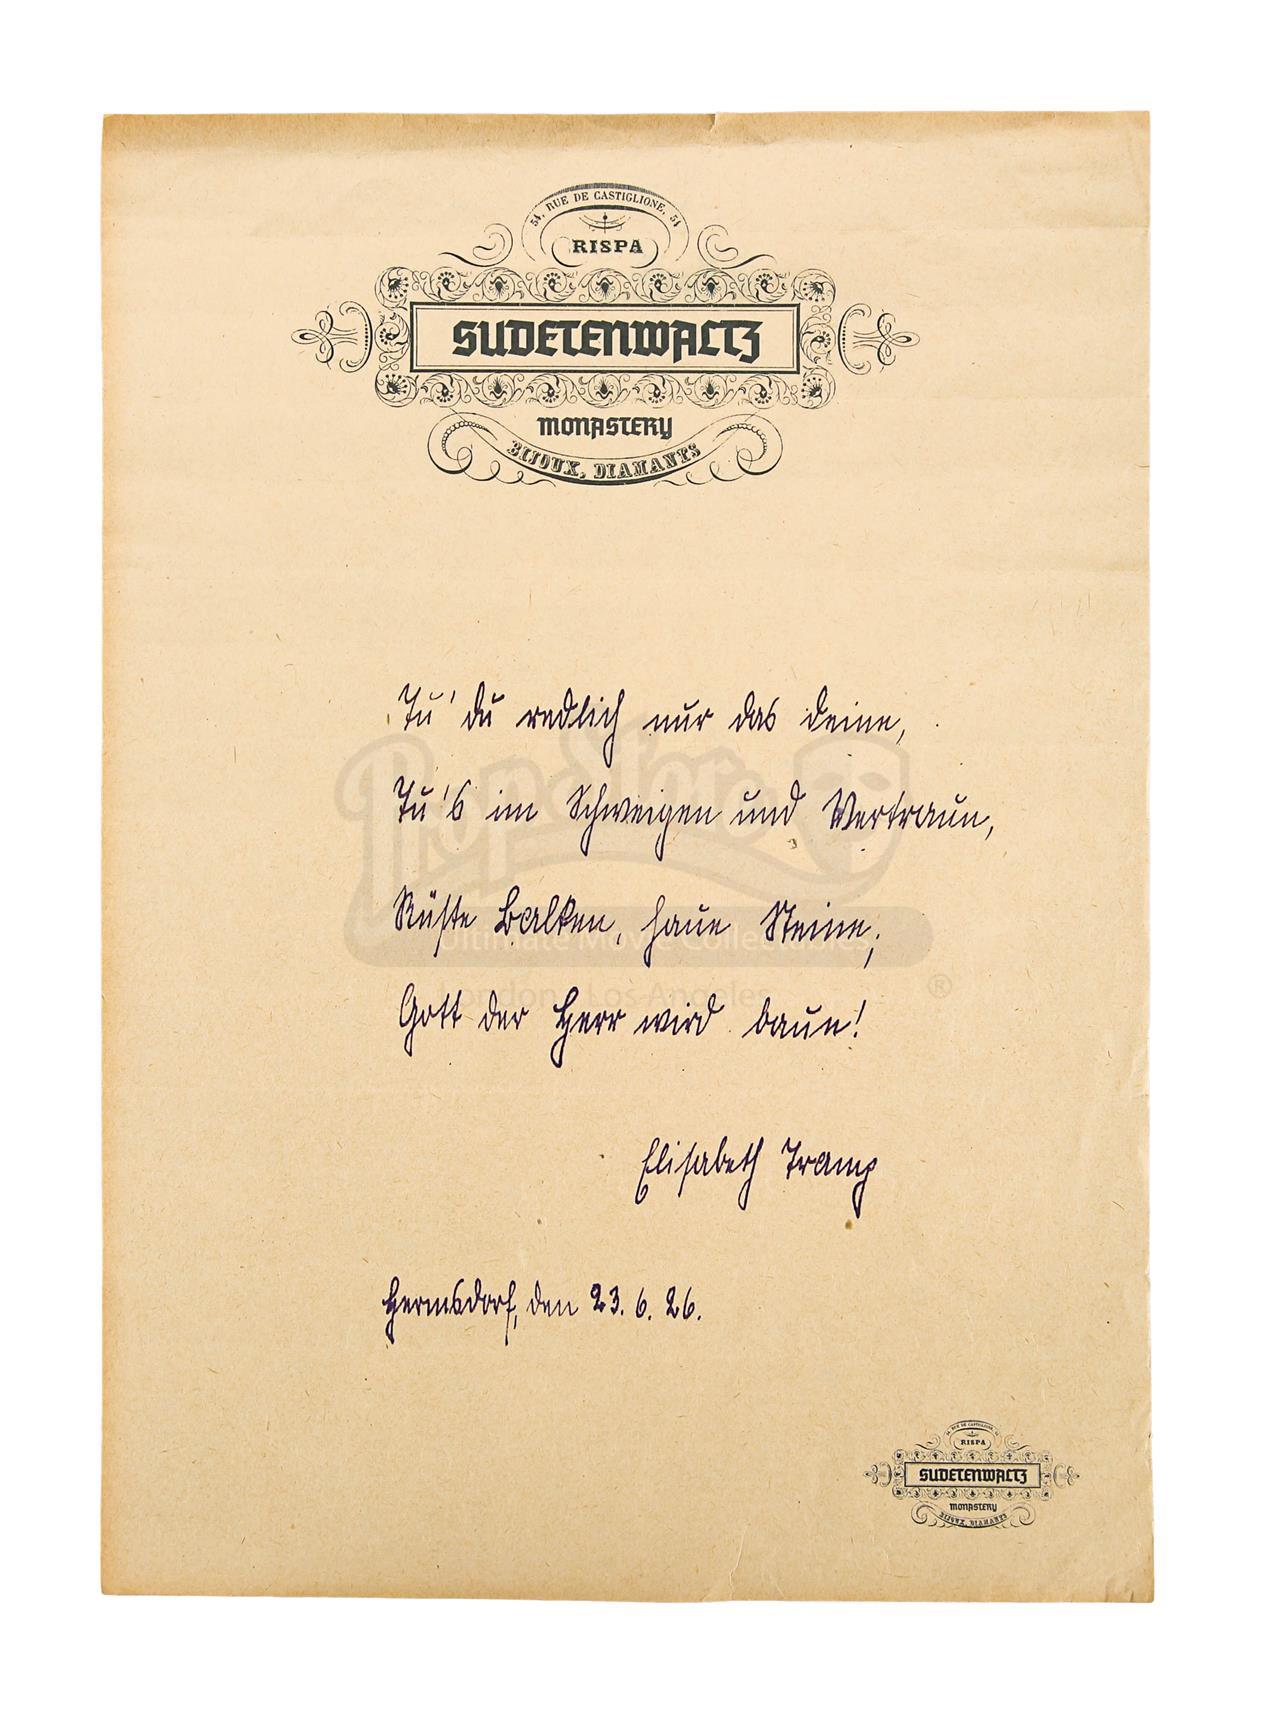 54, RUE DE CASTIGLIONE, 54
RISPA
SUDETENWALTZ
MONASTERY
BIJOUX, DIAMANTS
Tu' du redlich nur das deine,
Tu's im Schweigen und Vertraun,
Rüste Balken, haue Steine;
Gott der Herr wird baun!
Elisabeth Tramp
Hermsdorf, den 23. 6. 26.
PropStore
Ultimate Movie Collectables
London - Los Angeles
®
54, RUE DE CASTIGLIONE, 54
RISPA
SUDETENWALTZ
MONASTERY
BIJOUX, DIAMANTS